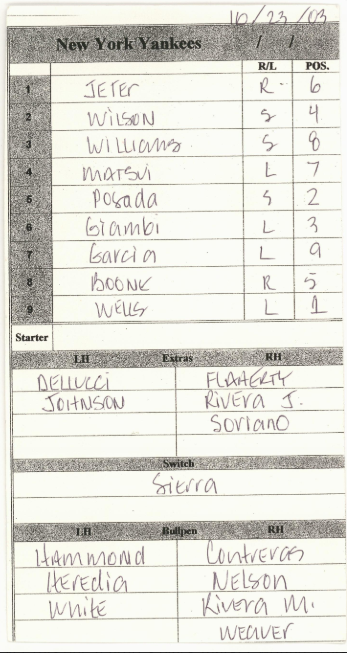 10/23/03
New York Yankees / /
R/L POS.
1 JETER R 6
2 WILSON S 4
3 WILLIAMS S 8
4 MATSUI L 7
5 POSADA S 2
6 Giambi L 3
7 Garcia L 9
8 BOONE R 5
9 WELLS L 1
Starter
LH Extras RH
DELLUCCI FLAHERTY
JOHNSON RIVERA J.
SORIANO
Switch
Sierra
LH Bullpen RH
HAMMOND Contreras
Heredia NELSON
White Rivera M.
WEAVER